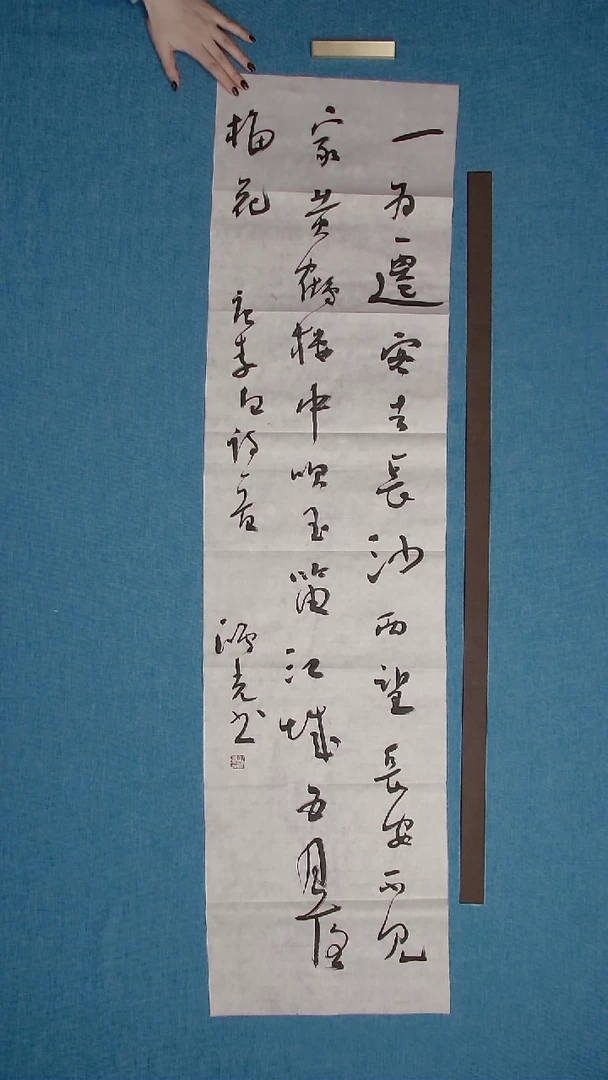 一为迁客去长沙西望长安不见
家黄鹤楼中吹玉笛江城五月落
梅花 唐李白诗一首 鸿克书